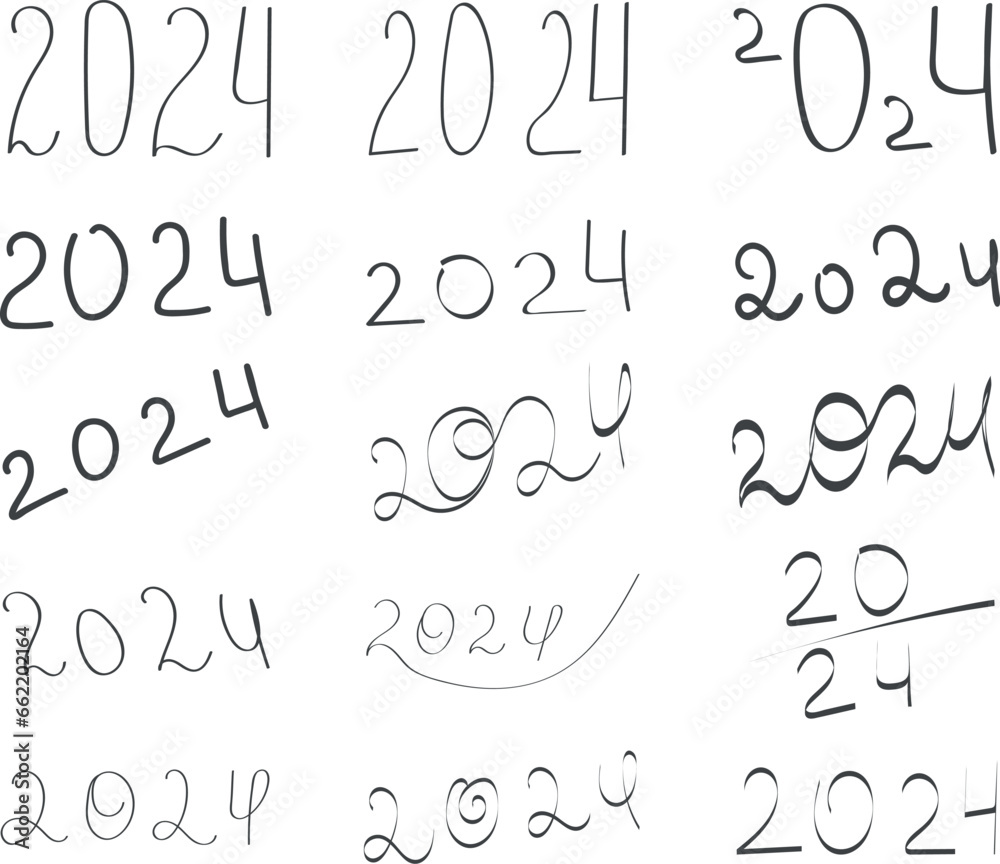 2024 2024 2024
2024 2024 2024
2024 2024 2024
2024 2024 20
24
2024 2024 2024
Adobe Stock | #662202164